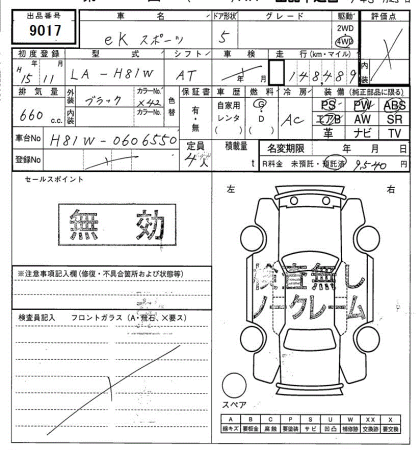 出品番号 車名 ドア形状 グレード 駆動 評価点
9017 eK スポーツ 5 2WD 4WD
初度登録 型式 シフト 車検 走行(km・マイル)
H15年11月 LA-H81W AT 年 月 148489
排気量 外装 カラーNo. 色替 保証書 車歴 燃料 冷房 装備(純正部品に限る)
660 c.c. ブラック X42 有・無 自家用 レンタ G・D AC PS PW ABS
内装 カラーNo. エアB AW SR
革 ナビ TV
車台No H81W-0606550 定員 4人 積載量 t 名変期限 年 月 日
登録No R料金 未預託・預託済 9,540円
セールスポイント 左 右
無効
検査無し
ノークレーム
※注意事項記入欄(修復・不具合箇所および状態等)
検査員記入 フロントガラス(A・飛石、×要ス)
スペア
A B C P S U W XX X
線キズ 要板金 腐蝕 要塗装 サビ 凹凸 補修跡 交換跡 要交換